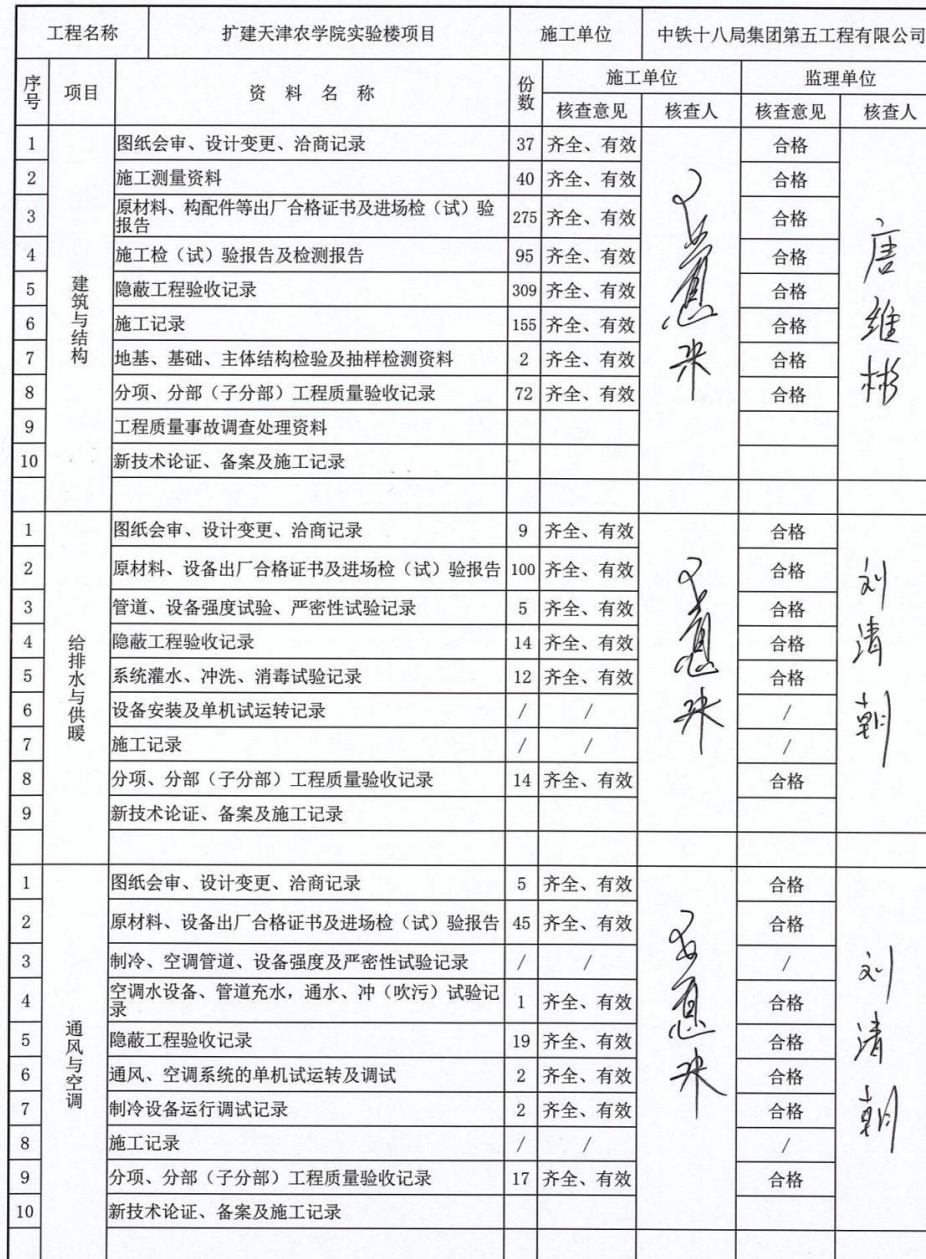 工程名称 扩建天津农学院实验楼项目 施工单位 中铁十八局集团第五工程有限公司
序号 项目 资料名称 份数 施工单位 监理单位
核查意见 核查人 核查意见 核查人
建筑与结构
1 图纸会审、设计变更、洽商记录 37 齐全、有效 合格
2 施工测量资料 40 齐全、有效 合格
3 原材料、构配件等出厂合格证书及进场检（试）验
报告 275 齐全、有效 合格
4 施工检（试）验报告及检测报告 95 齐全、有效 合格
5 隐蔽工程验收记录 309 齐全、有效 合格
6 施工记录 155 齐全、有效 合格
7 地基、基础、主体结构检验及抽样检测资料 2 齐全、有效 合格
8 分项、分部（子分部）工程质量验收记录 72 齐全、有效 合格
9 工程质量事故调查处理资料
10 新技术论证、备案及施工记录
唐维彬
给排水与供暖
1 图纸会审、设计变更、洽商记录 9 齐全、有效 合格
2 原材料、设备出厂合格证书及进场检（试）验报告 100 齐全、有效 合格
3 管道、设备强度试验、严密性试验记录 5 齐全、有效 合格
4 隐蔽工程验收记录 14 齐全、有效 合格
5 系统灌水、冲洗、消毒试验记录 12 齐全、有效 合格
6 设备安装及单机试运转记录 / / /
7 施工记录 / / /
8 分项、分部（子分部）工程质量验收记录 14 齐全、有效 合格
9 新技术论证、备案及施工记录
刘清朝
通风与空调
1 图纸会审、设计变更、洽商记录 5 齐全、有效 合格
2 原材料、设备出厂合格证书及进场检（试）验报告 45 齐全、有效 合格
3 制冷、空调管道、设备强度及严密性试验记录 / / /
4 空调水设备、管道充水，通水、冲（吹污）试验记
录 1 齐全、有效 合格
5 隐蔽工程验收记录 19 齐全、有效 合格
6 通风、空调系统的单机试运转及调试 2 齐全、有效 合格
7 制冷设备运行调试记录 2 齐全、有效 合格
8 施工记录 / / /
9 分项、分部（子分部）工程质量验收记录 17 齐全、有效 合格
10 新技术论证、备案及施工记录
刘清朝